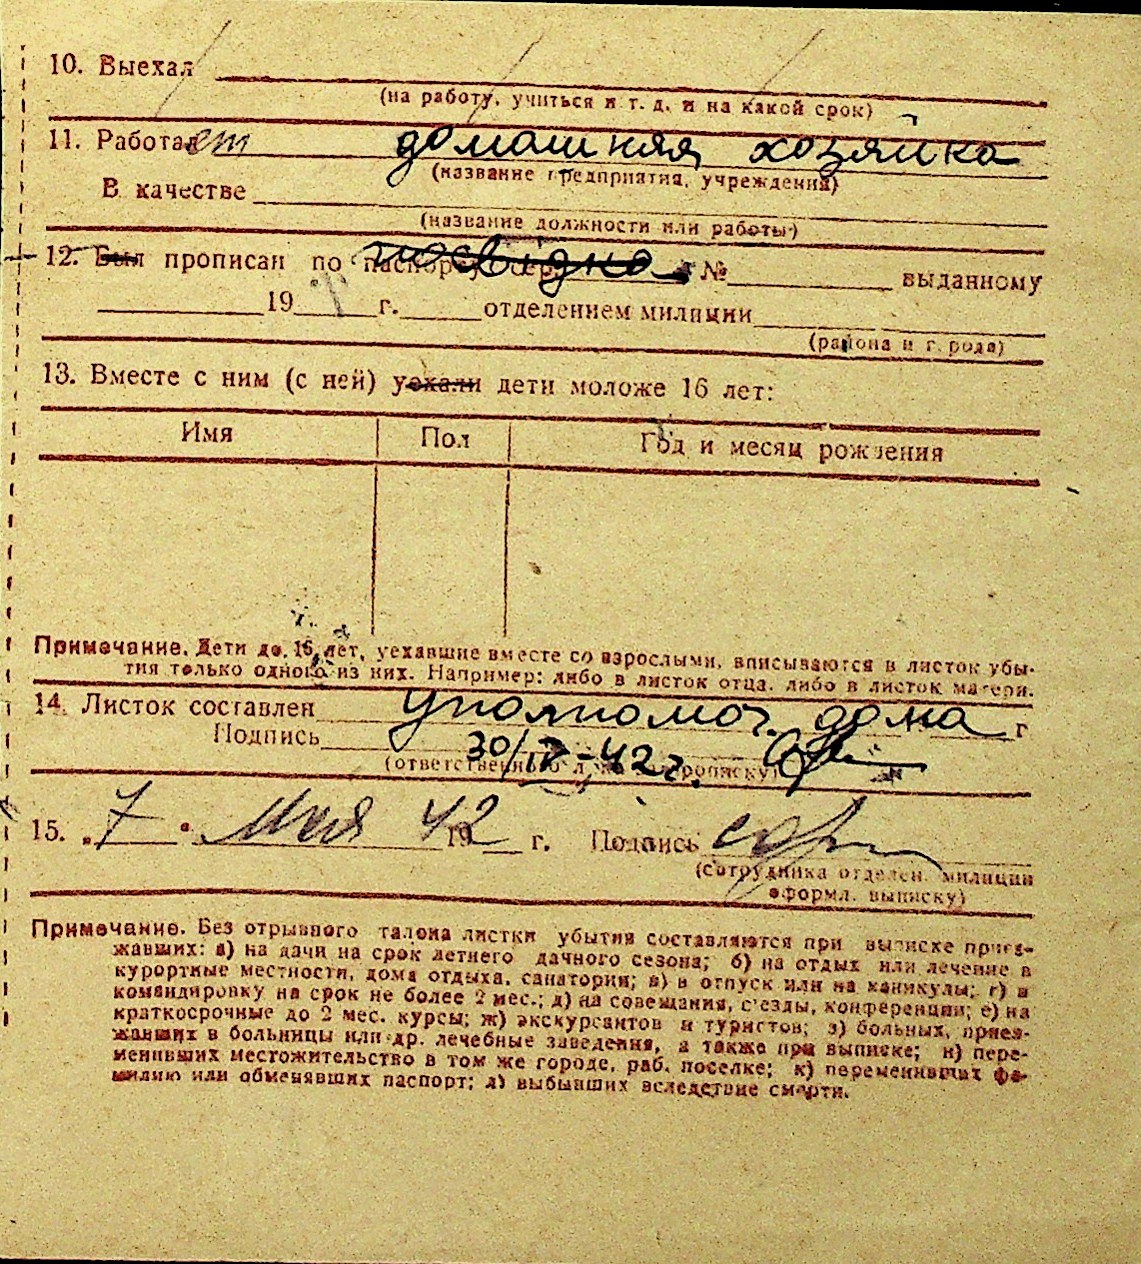 10. Выехал
(на работу, учиться и т. д. и на какой срок)
11. Работает домашняя хозяйка
(название предприятия, учреждения)
В качестве
(название должности или работы)
12. Был прописан по паспорту сер. посвідка № выданному
19 г. отделением милиции
(района и города)
13. Вместе с ним (с ней) уехали дети моложе 16 лет:
Имя Пол Год и месяц рождения
Примечание. Дети до 16 лет, уехавшие вместе со взрослыми, вписываются в листок убы-
тия только одного из них. Например: либо в листок отца, либо в листок матери.
14. Листок составлен уполномоч. дома г
Подпись 30/IV-42 г.
(ответственного за прописку)
15. „7" мая 42 19 г. Подпись
(сотрудника отделен. милиции
оформл. выписку)
Примечание. Без отрывного талона листки убытия составляются при выписке приез-
жавших: а) на дачи на срок летнего дачного сезона; б) на отдых или лечение в
курортные местности, дома отдыха, санатории; в) в отпуск или на каникулы; г) в
командировку на срок не более 2 мес.; д) на совещания, с'езды, конференции; е) на
краткосрочные до 2 мес. курсы; ж) экскурсантов и туристов; з) больных, приез-
жавших в больницы или др. лечебные заведения, а также при выписке; и) пере-
менивших местожительство в том же городе, раб. поселке; к) переменивших фа-
милию или обменявших паспорт; л) выбывших вследствие смерти.